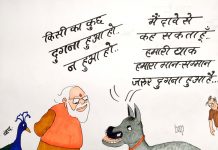 किसी का कुछ
दुगना हुआ हो..
न हुआ हो..
मैं दावे से
कह सकता हूँ
हमारी धाक
हमारा मान-सम्मान
जरूर दुगना हुआ है...